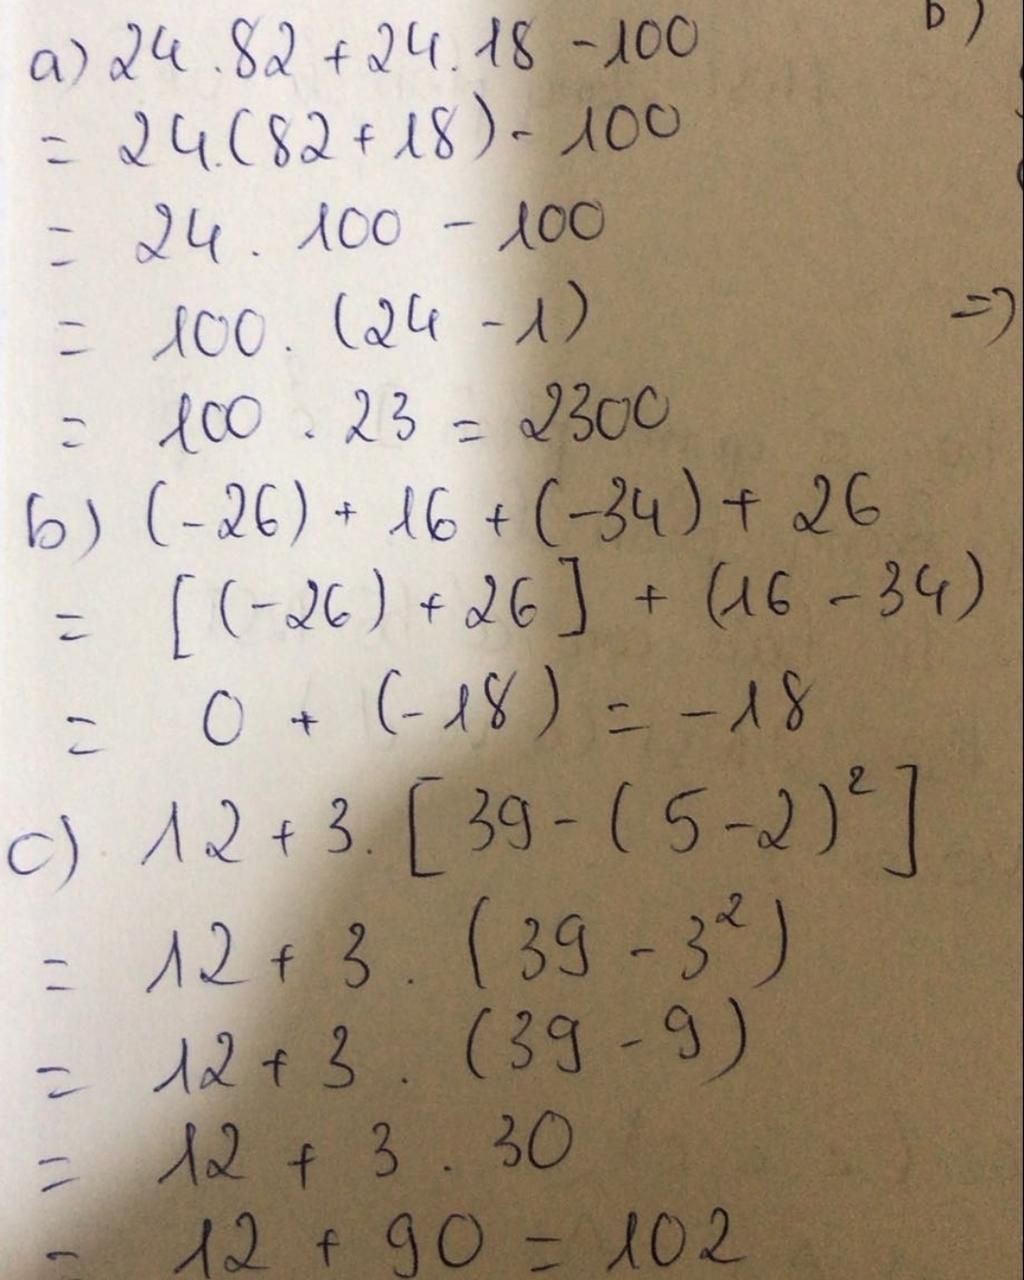 a) 24 . 82 + 24 . 18 - 100
= 24.(82 + 18) - 100
= 24 . 100 - 100
= 100 . (24 - 1)
= 100 . 23 = 2300
b) (-26) + 16 + (-34) + 26
= [(-26) + 26] + (16 - 34)
= 0 + (-18) = -18
c) 12 + 3 . [39 - (5 - 2)²]
= 12 + 3 . (39 - 3²)
= 12 + 3 . (39 - 9)
= 12 + 3 . 30
= 12 + 90 = 102
b)
=>